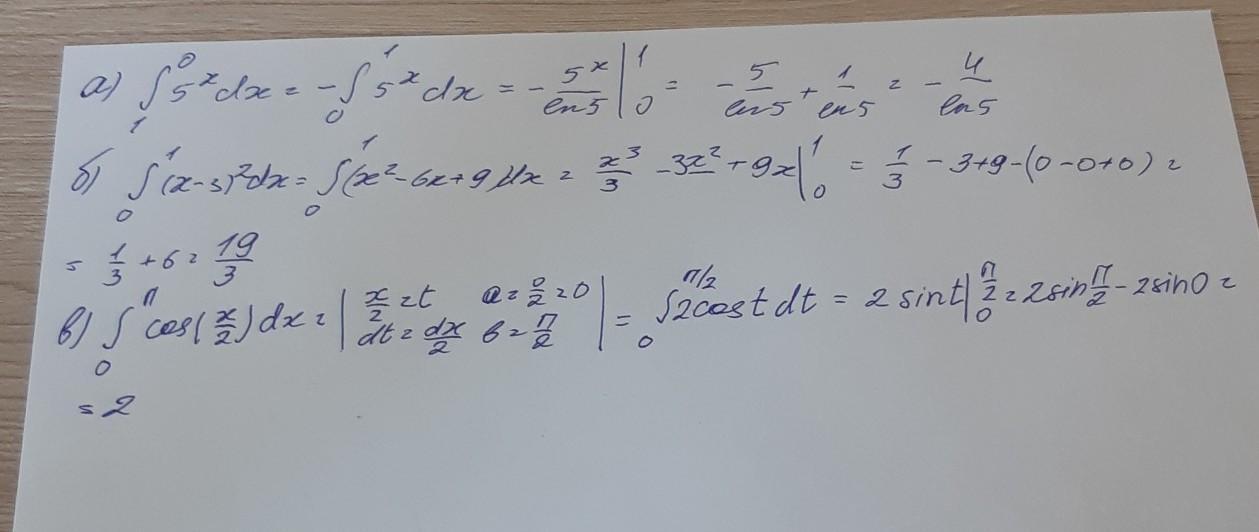 а) ∫₁⁰ 5ˣ dx = -∫₀¹ 5ˣ dx = - 5ˣ/ln5 |₀¹ = - 5/ln5 + 1/ln5 = - 4/ln5
б) ∫₀¹ (x-3)² dx = ∫₀¹ (x² - 6x + 9) dx = x³/3 - 3x² + 9x |₀¹ = 1/3 - 3 + 9 - (0 - 0 + 0) =
= 1/3 + 6 = 19/3
в) ∫₀^π cos(x/2) dx = | x/2 = t a = 0/2 = 0 dt = dx/2 b = π/2 | = ∫₀^(π/2) 2cost dt = 2 sint |₀^(π/2) = 2sin π/2 - 2sin0 =
= 2